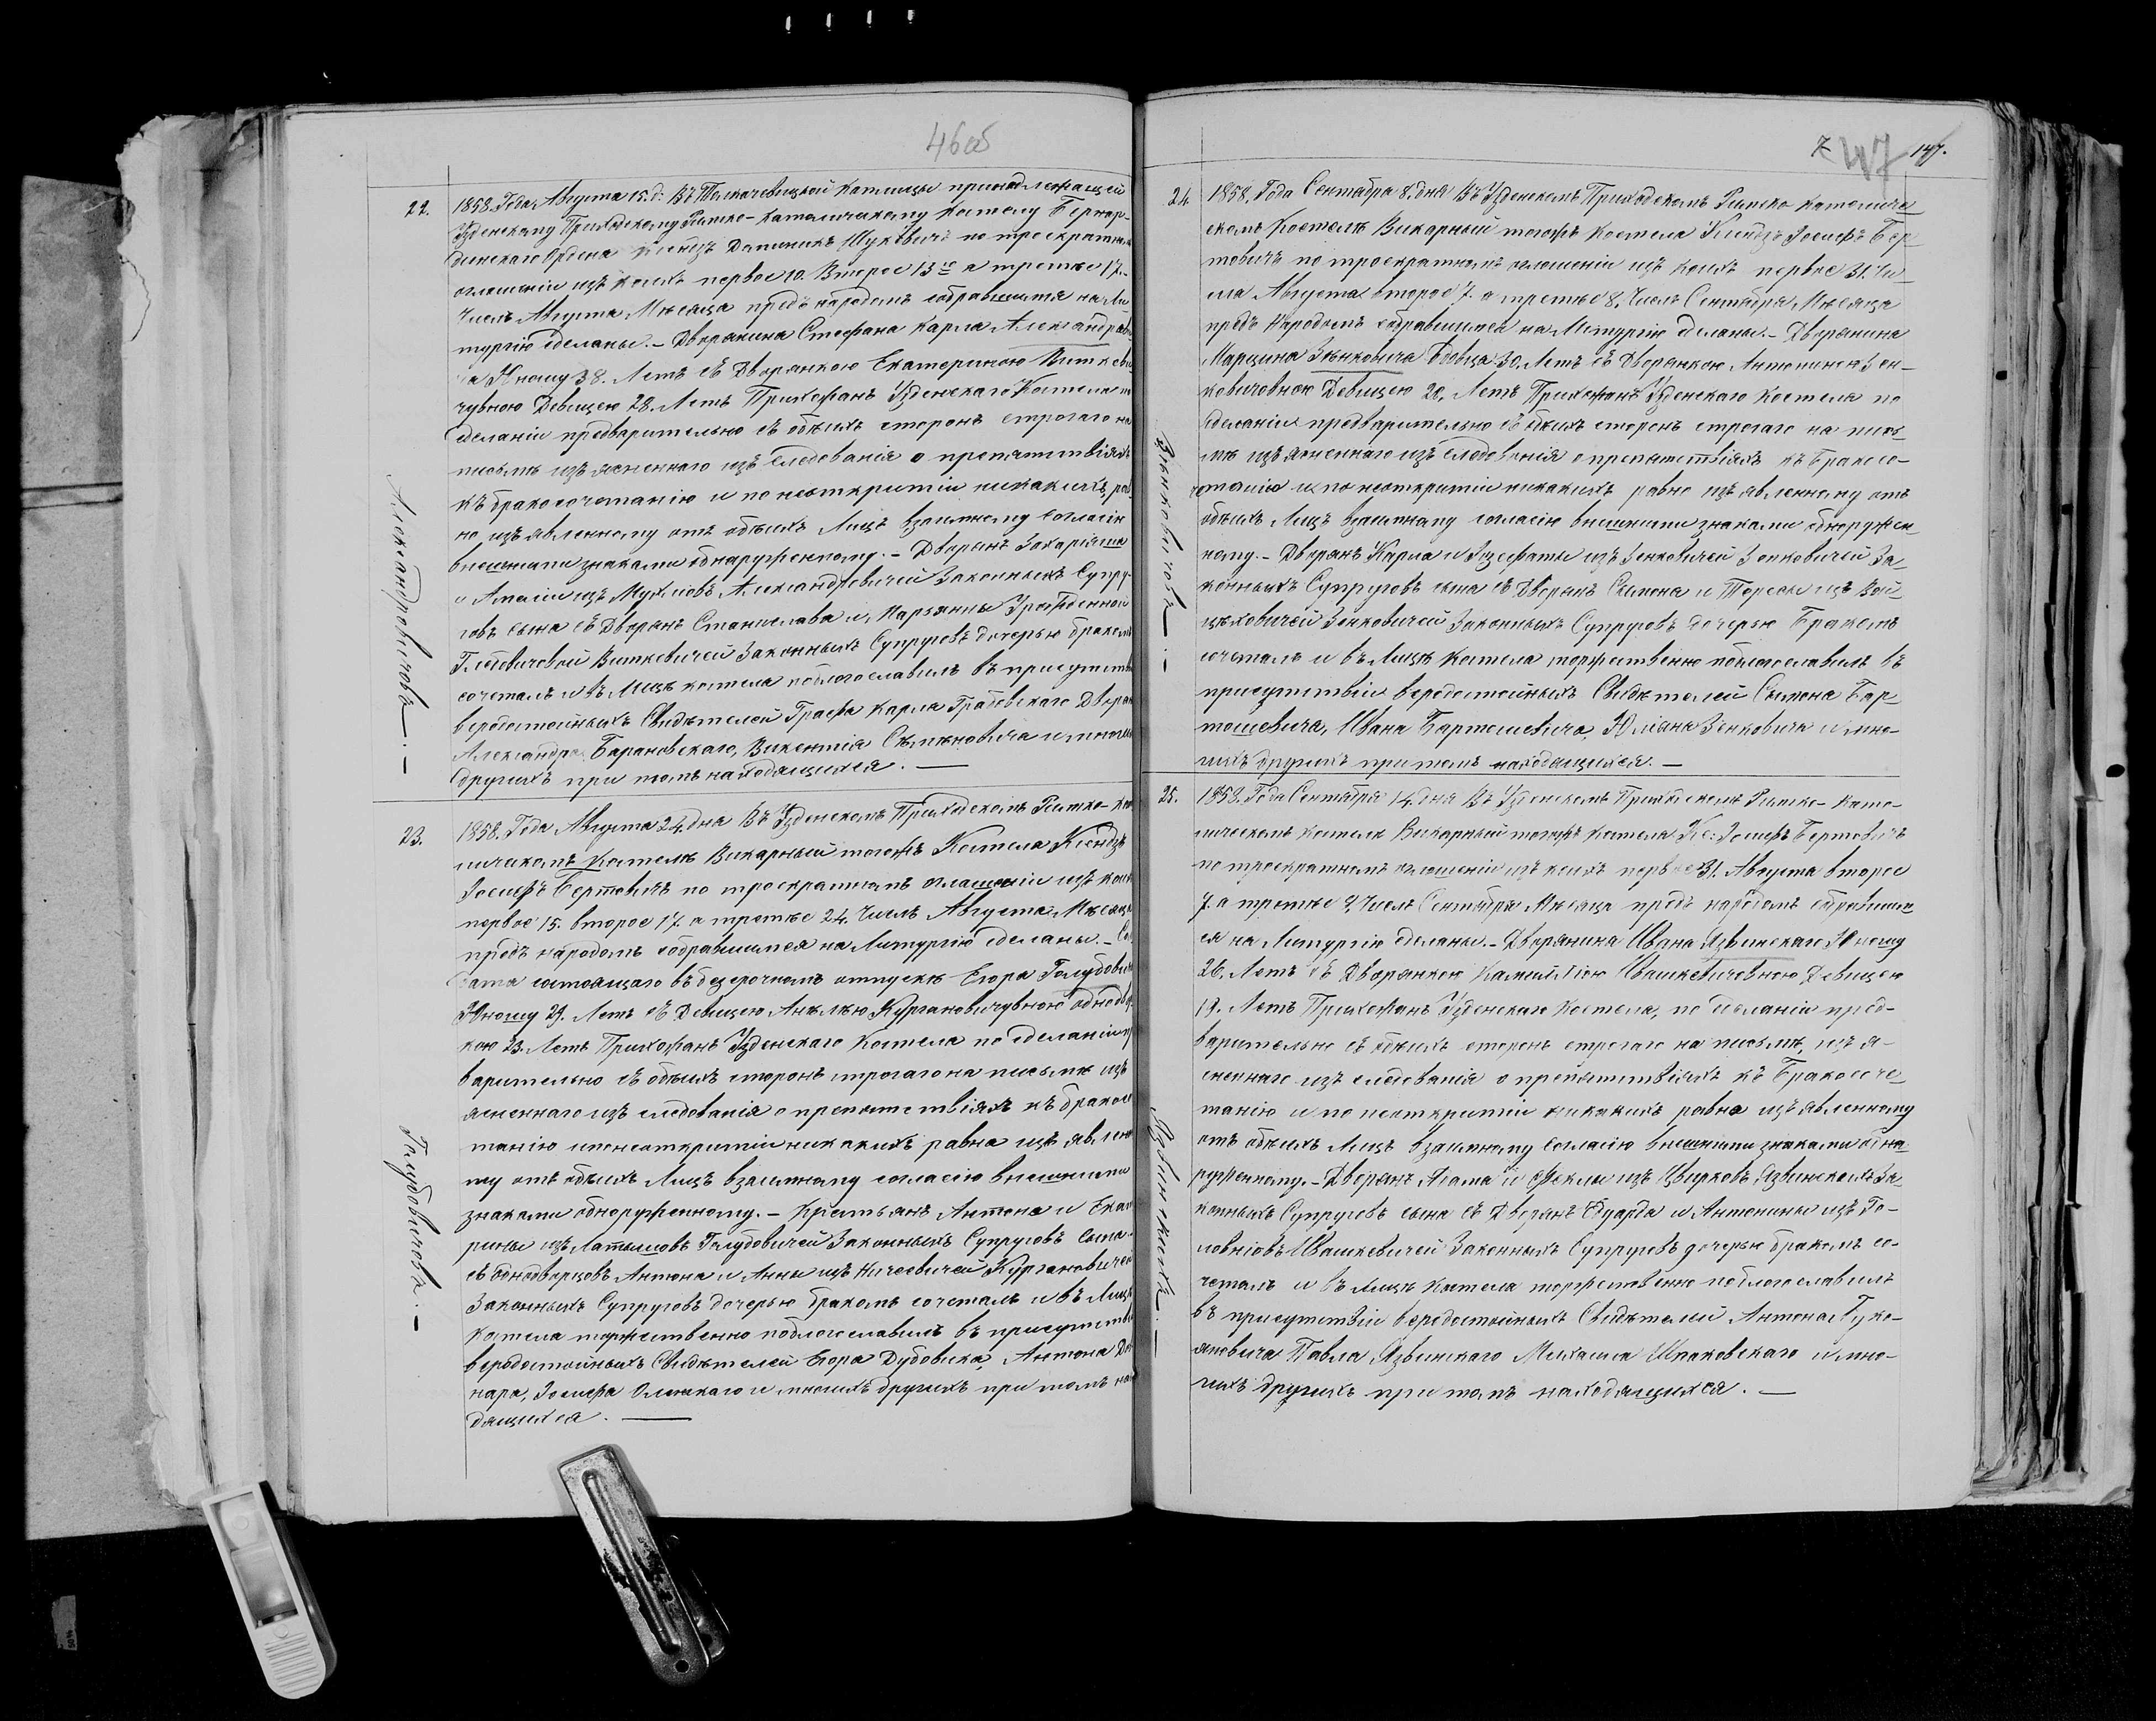 46 об
22.
1858. Года, Августа 15. д: Въ Толкачевицкой Каплицы принадлежащей
Узденскому Приходскому Римско-Католическому Костелу Бернар-
динскаго Ордена Ксендзъ Доминикъ Шуковичъ по троекратномъ
оглашеніи изъ коихъ первое 10. Второе 13го а третье 17.
Числъ Августа Мѣсяца предъ народомъ собравшимся на Ли-
тургію сделаны. – Дворянина Стефана Карла Александрови-
ча Юношу 38. Летъ съ Дворянкою Екатериною Виткеви-
чувною Девицею 28. Летъ Прихожанъ Узденскаго Костела по
сделаніи предварительно съ обѣихъ сторонъ строгаго на
письмѣ изъясненнаго изъ следованія о препятствіяхъ
къ бракосочетанію и по неоткрытіи никакихъ, рав-
но изъявленному отъ обѣихъ Лицъ взаимному согласію
внешними знаками обнаруженному. – Дворянъ Захаріяша
и Амаліи изъ Александровичей Законныхъ Супру-
говъ сына съ Дворянъ Станислава и Марьянны Урожденной
Виткевичей Законныхъ Супруговъ дочерью бракомъ
сочеталъ и въ Лицѣ костела поблагословилъ въ присутствіи
вѣродостойныхъ Свидѣтелей Графа Карла Грабовскаго Дворянъ
Александра Барановскаго, Викентія и многихъ
другихъ при томъ находящихся. —
Александровичовъ. –
23.
1858. Года Августа 24. дня Въ Узденскомъ Приходскомъ Римско-Като-
лическомъ Костелѣ Викарный тогожъ Костела Ксендзъ
Іосифъ Бертовичъ по троекратномъ оглашеніи изъ коихъ
первое 15. второе 17. а третье 24. Числъ Августа Мѣсяца
предъ народомъ собравшимся на Литургію сделаны. – Сол-
дата состоящаго въ безсрочномъ отпускѣ Егора Голубовича
Юношу 29. Летъ съ Девицею Анелею Кургановичувною однодвор-
кою 23. Летъ Прихожанъ Узденскаго Костела по сделаніи пред-
варительно съ обѣихъ сторонъ строгаго на письмѣ изъ
ясненнаго изъ следованія о препятствіяхъ къ бракосоче-
танію и по неоткрытіи никакихъ равна изъ явленно-
му отъ обѣихъ Лицъ взаимному согласію внешними
знаками обноруженному. – Крестьянъ Антона и Екате-
рины изъ Латышовъ Голубовичей Законныхъ Супруговъ сына
съ однодворцовъ Антона и Анны изъ Кургановичей
Законныхъ Супруговъ дочерью бракомъ сочеталъ и въ Лицѣ
костела торжественно поблагославилъ въ присутствіи
вѣродостойныхъ Свидѣтелей Егора Дубовика, Антона
Іосифа и многихъ другихъ при томъ нахо-
дящихся. —
Голубовичовъ. –
47 147.
24.
1858. Года Сентября 8. дня Въ Узденскомъ Приходскомъ Римско Католиче-
скомъ Костелѣ Викарный тогожъ Костела Ксендзъ Іосифъ Бер-
товичъ по троекратномъ оглошеніи изъ коихъ первое 31. Чи-
сла Августа второе 7. а третье 8. Числъ Сентября Мѣсяца
предъ Народомъ собравшимся на Литургію сделаны. – Дворянина
Марцина Зѣнковича Вдовца 30. Летъ съ Дворянкою Антониною Зен-
ковичовною Девицею 20. Летъ Прихожанъ Узденскаго Костела по
сделаніи предварительно съ обѣихъ сторонъ строгаго на пись-
мѣ изъ ясненнаго изъ следованія о препятствіяхъ къ Бракосо-
четанію и по неоткрытіи никакихъ равно изъ явленному отъ
обѣихъ Лицъ взаимному согласію внешними знаками обноружен-
ному. – Дворянъ Карла и Іозефаты изъ Зенковичей Зенковичей За-
конныхъ Супруговъ сына съ Дворянъ Симона и Тересы изъ Вой-
цѣховичей Зенковичей Законныхъ Супруговъ дочерью Бракомъ
сочеталъ и въ Лицѣ Костела торжественно поблагославилъ въ
присутствіи веродостойныхъ Свидѣтелей Сымона Бар-
тошевича, Ивана Бартошевича, Юліана Зенковича и мно-
гихъ другихъ при томъ находящихся. —
Зѣнковичовъ. –
25.
1858. Года Сентября 14. дня Въ Узденскомъ Приходскомъ Римско-Като-
лическомъ Костелѣ Викарный тогожъ Костела Кс: Іосифъ Бертовичъ
по троекратномъ оглошеніи изъ коихъ первое 31. Августа второе
7. а третье Числъ Сентября Мѣсяца предъ народомъ собравшим-
ся на Литургію сделаны. – Дворянина Ивана Язвинскаго Юношу
26. Летъ съ Дворянкою Камиллiею Ивашкевичовною Девицею
19. Летъ Прихожанъ Узденскаго Костела, по сделаніи пред-
варительно съ обѣихъ сторонъ строгаго на письмѣ, изъ я-
сненнаго изъ следованія о препятствіяхъ къ Бракосоче-
танію и по неоткрытіи никакихъ равна изъ явленному
отъ обѣихъ Лицъ взаимному согласію внешними знаками обна-
руженному. – Дворянъ Адама и Феклы изъ Цвирковъ Язвинскихъ За-
конныхъ Супруговъ сына съ Дворянъ Эдуарда и Антонины изъ Го-
ловніовъ Ивашкевичей Законныхъ Супруговъ дочерью бракомъ со-
четалъ и въ Лицѣ Костела торжественно поблогославилъ
въ присутствіи веродостойныхъ Свидѣтелей Антона Луко-
яновича Павла Язвинскаго Михаила Шпаковскаго и мно-
гихъ другихъ при томъ находящихся. —
Язвинскихъ. –